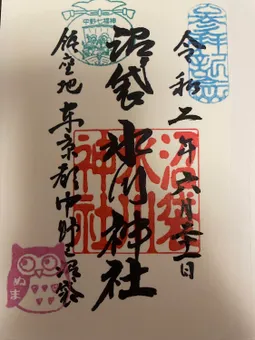 参拝記念
令和二年六月二十一日
沼袋氷川神社
沼袋
氷川
神社
中野七福神
鎮座地 东京都中野区沼袋
ぬま